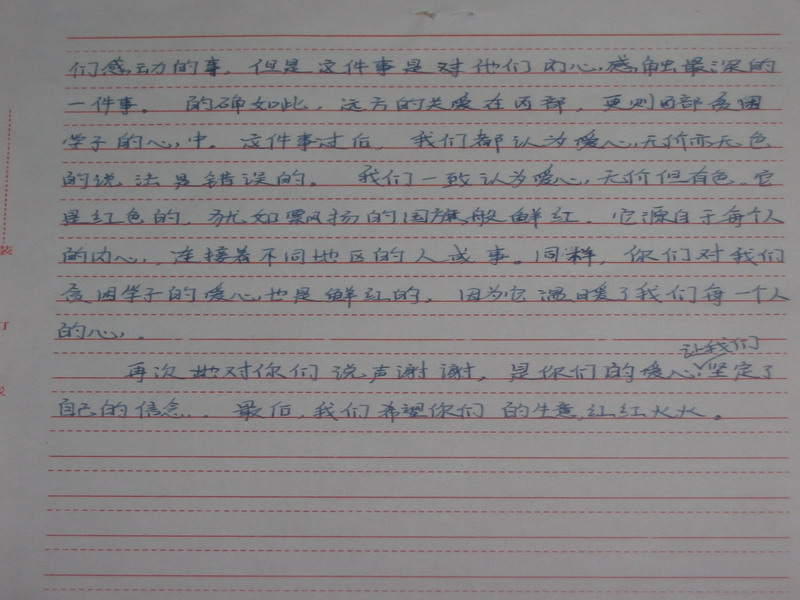 们感动的事，但是这件事是对他们内心感触最深的
一件事。的确如此，远方的关爱在西部，更则西部贫困
学子的心中。这件事过后，我们都认为爱心无价亦无色
的说法是错误的。我们一致认为爱心无价但有色。它
是红色的，犹如飘扬的国旗般鲜红。它源自于每个人
的内心，连接着不同地区的人或事。同样，你们对我们
贫困学子的爱心也是鲜红的，因为它温暖了我们每一个人
的心。
让我们
再次地对你们说声谢谢，是你们的爱心坚定了
自己的信念。最后，我们希望你们的生意红红火火。
装
订